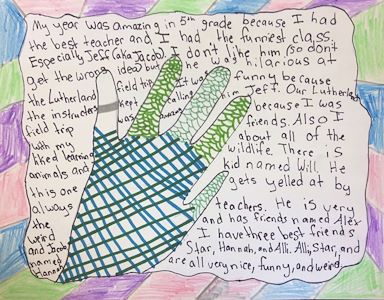 My year was amazing in 5th grade because I had
the best teacher and I had the funniest class.
Especially Jeff (aka Jacob). I don't like him (so don't
get the wrong idea but he was hilarious at
the Lutherland field trip. It was funny because
the instructors kept calling him Jeff. Our Lutherland
field trip was amazing because I was
with my friends. Also I
liked learning about all of the
animals and wildlife. There is
this one kid named Will. He
always gets yelled at by
the teachers. He is very
weird and has friends named Alex
and Jacob. I have three best friends
named Star, Hannah, and Alli. Alli, Star, and
Hannah are all very nice, funny, and weird.